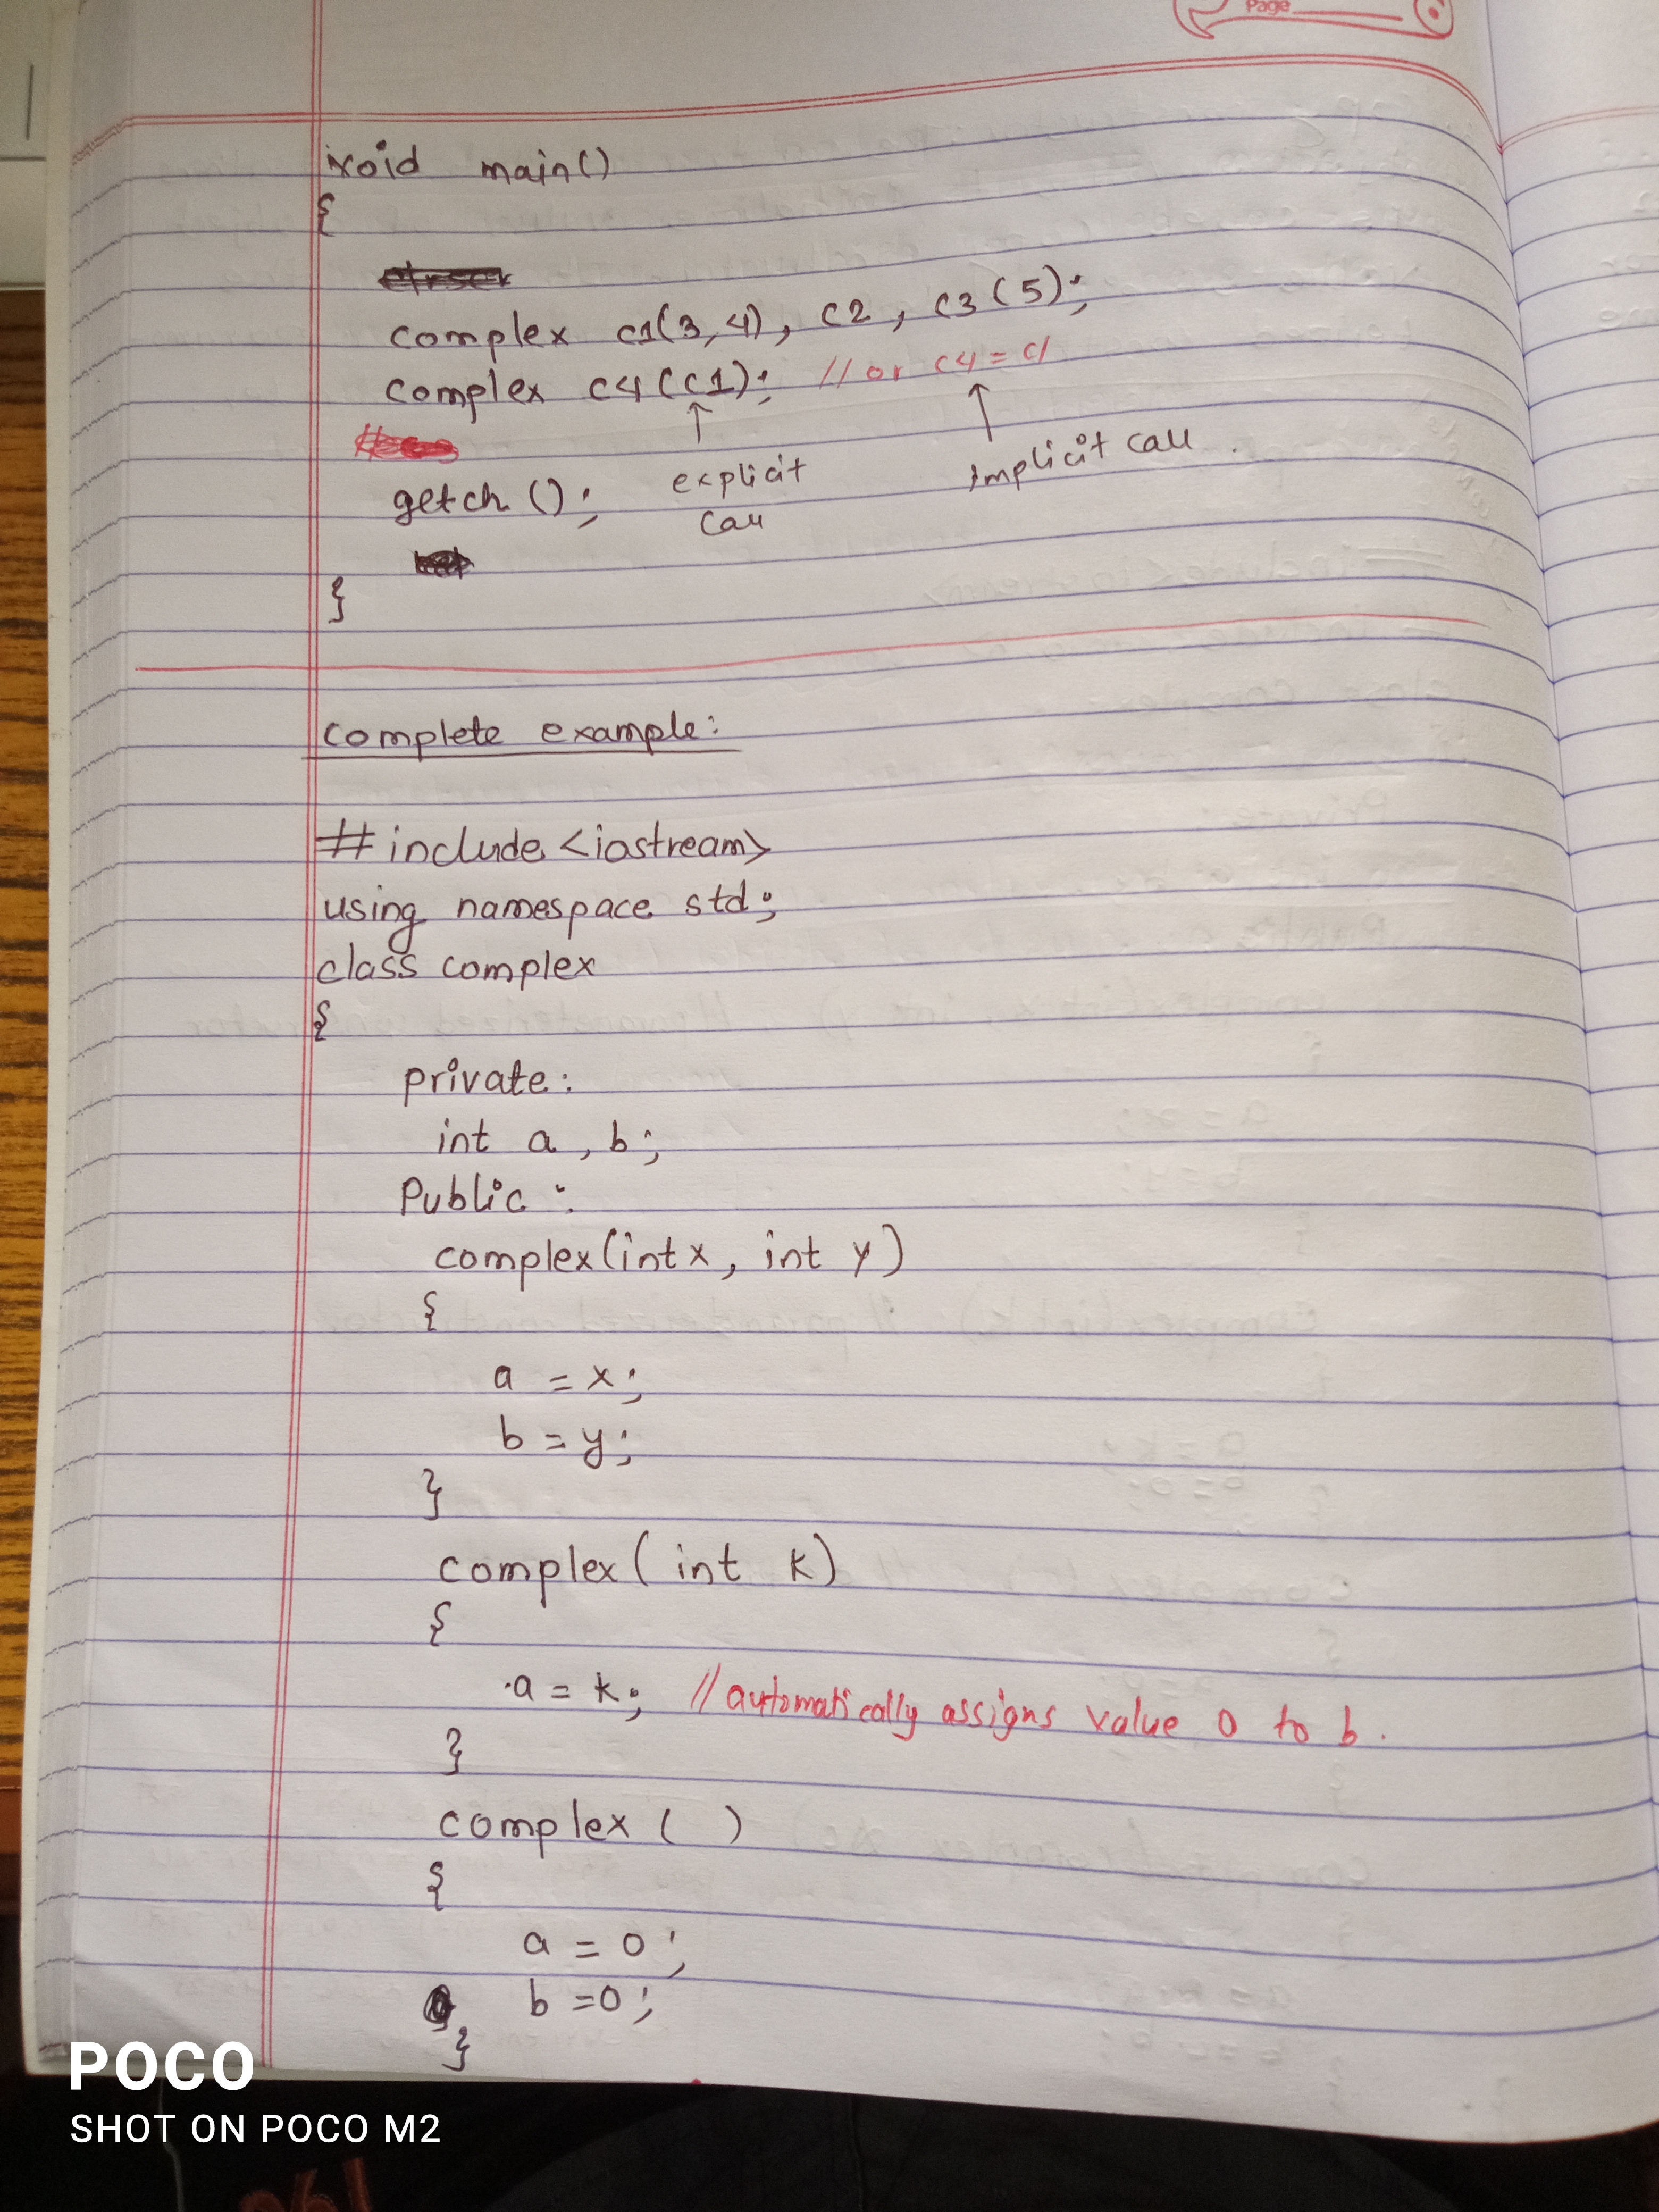 Page
void main()
{
complex c1(3,4), c2, c3(5);
complex c4(c1); // or c4 = c1
explicit call
implicit call.
getch();
}
complete example:
#include<iostream>
using namespace std;
class complex
{
private:
int a, b;
Public:
complex(int x, int y)
{
a = x;
b = y;
}
complex( int k)
{
a = k; //automatically assigns value 0 to b.
}
complex ( )
{
a = 0;
b = 0;
}
POCO
SHOT ON POCO M2